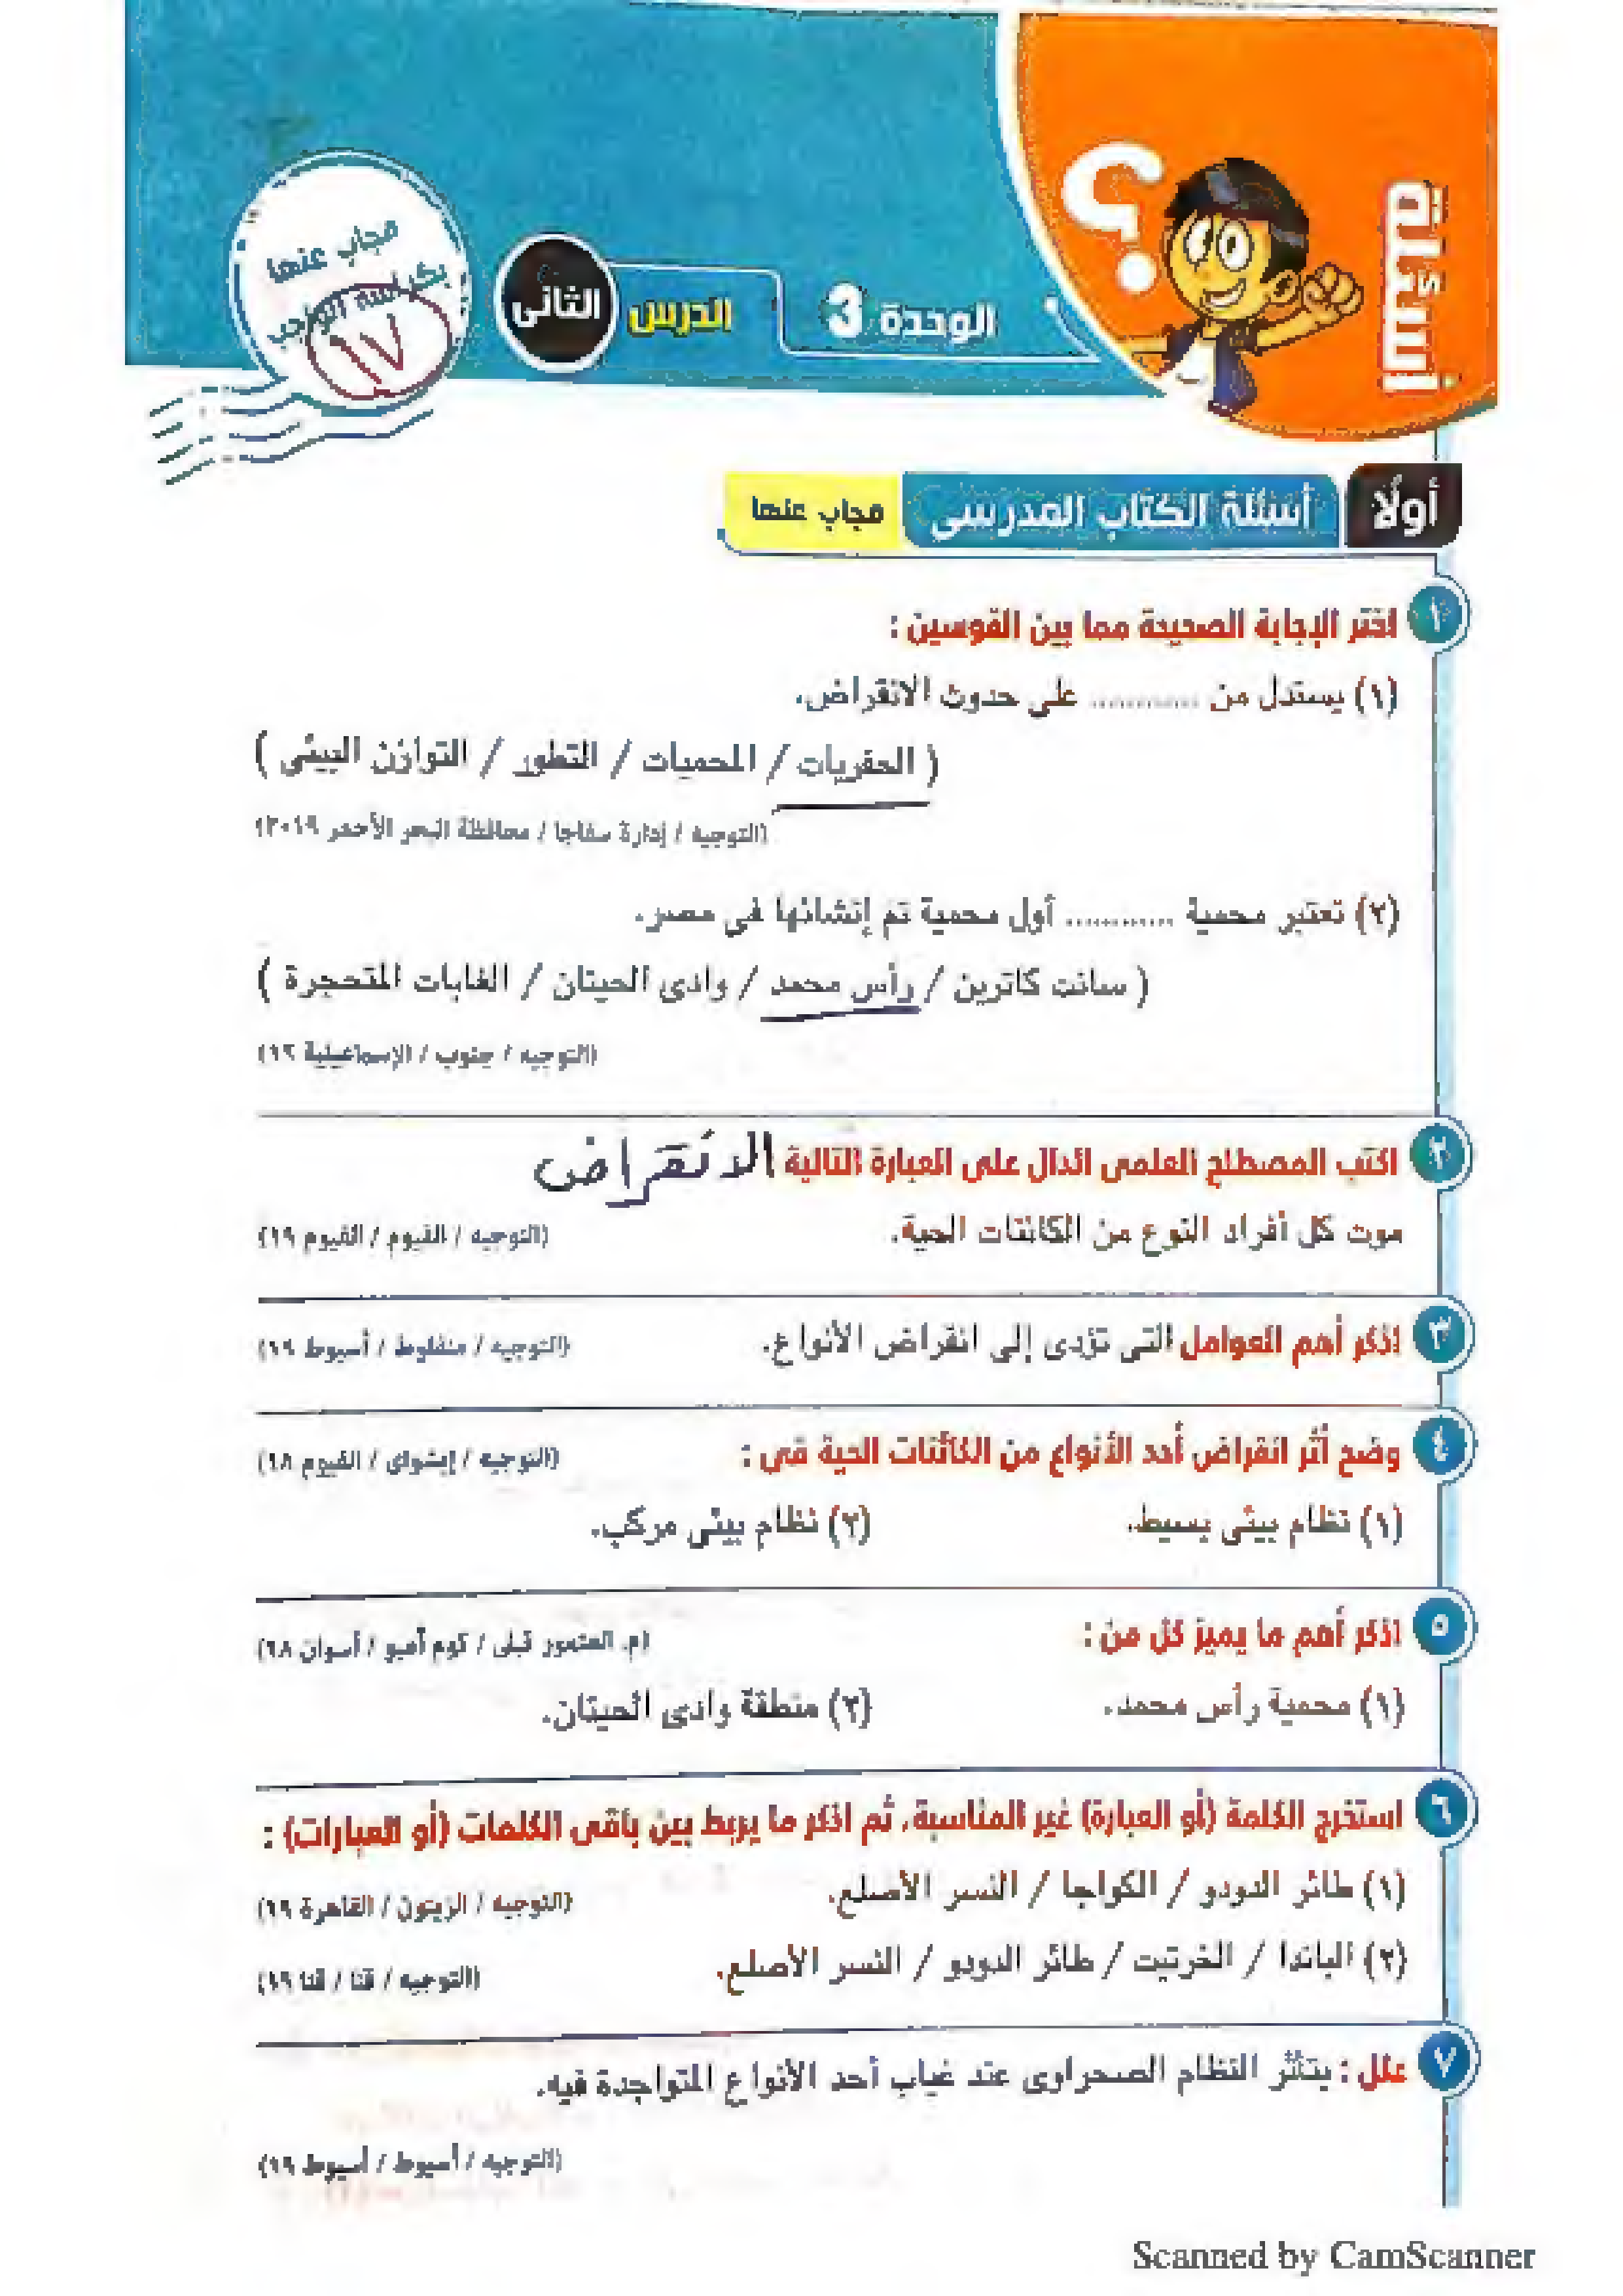 أسئلة
؟
الوحدة 3 الدرس الثانى
مجاب عنها
بكراسة الواجب
١٧
أولًا أسئلة الكتاب المدرسى مجاب عنها
١ اختر الإجابة الصحيحة مما بين القوسين :
(١) يستدل من ............ على حدوث الانقراض.
( الحفريات / المحميات / التطور / التوازن البيئى )
(التوجيه / إدارة سفاجا / محافظة البحر الأحمر ٢٠١٩)
(٢) تعتبر محمية ............ أول محمية تم إنشائها فى مصر.
( سانت كاترين / رأس محمد / وادى الحيتان / الغابات المتحجرة )
(التوجيه / جنوب / الإسماعيلية ١٩)
٢ اكتب المصطلح العلمى الدال على العبارة التالية الانقراض
موت كل أفراد النوع من الكائنات الحية. (التوجيه / الفيوم / الفيوم ١٩)
٣ اذكر أهم العوامل التى تؤدى إلى انقراض الأنواع. (التوجيه / منفلوط / أسيوط ١٩)
٤ وضح أثر انقراض أحد الأنواع من الكائنات الحية فى : (التوجيه / إبشواى / الفيوم ١٨)
(١) نظام بيئى بسيط. (٢) نظام بيئى مركب.
٥ اذكر أهم ما يميز كل من : (م. المنصور قبلى / كوم أمبو / أسوان ١٨)
(١) محمية رأس محمد. (٢) منطقة وادى الحيتان.
٦ استخرج الكلمة (أو العبارة) غير المناسبة، ثم اذكر ما يربط بين باقى الكلمات (أو العبارات) :
(١) طائر الدودو / الكواجا / النسر الأصلع. (التوجيه / الزيتون / القاهرة ١٩)
(٢) الباندا / الخرتيت / طائر الدودو / النسر الأصلع. (التوجيه / قنا / قنا ١٩)
٧ علل : يتأثر النظام الصحراوى عند غياب أحد الأنواع المتواجدة فيه.
(التوجيه / أسيوط / أسيوط ١٩)
Scanned by CamScanner